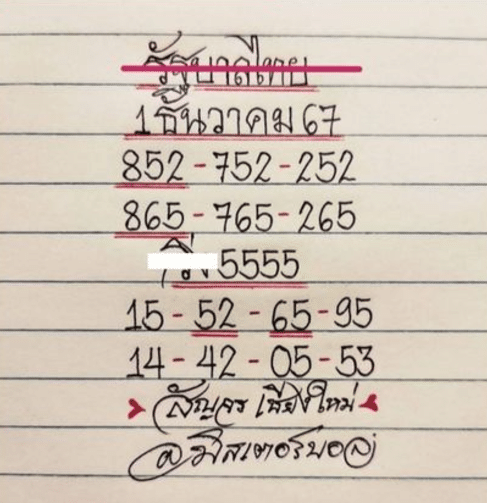 รัฐบาลไทย
1 ธันวาคม 67
852-752-252
865-765-265
วิ่ง 5555
15-52-65-95
14-42-05-53
สัญจร เชียงใหม่
มิสเตอร์บอล